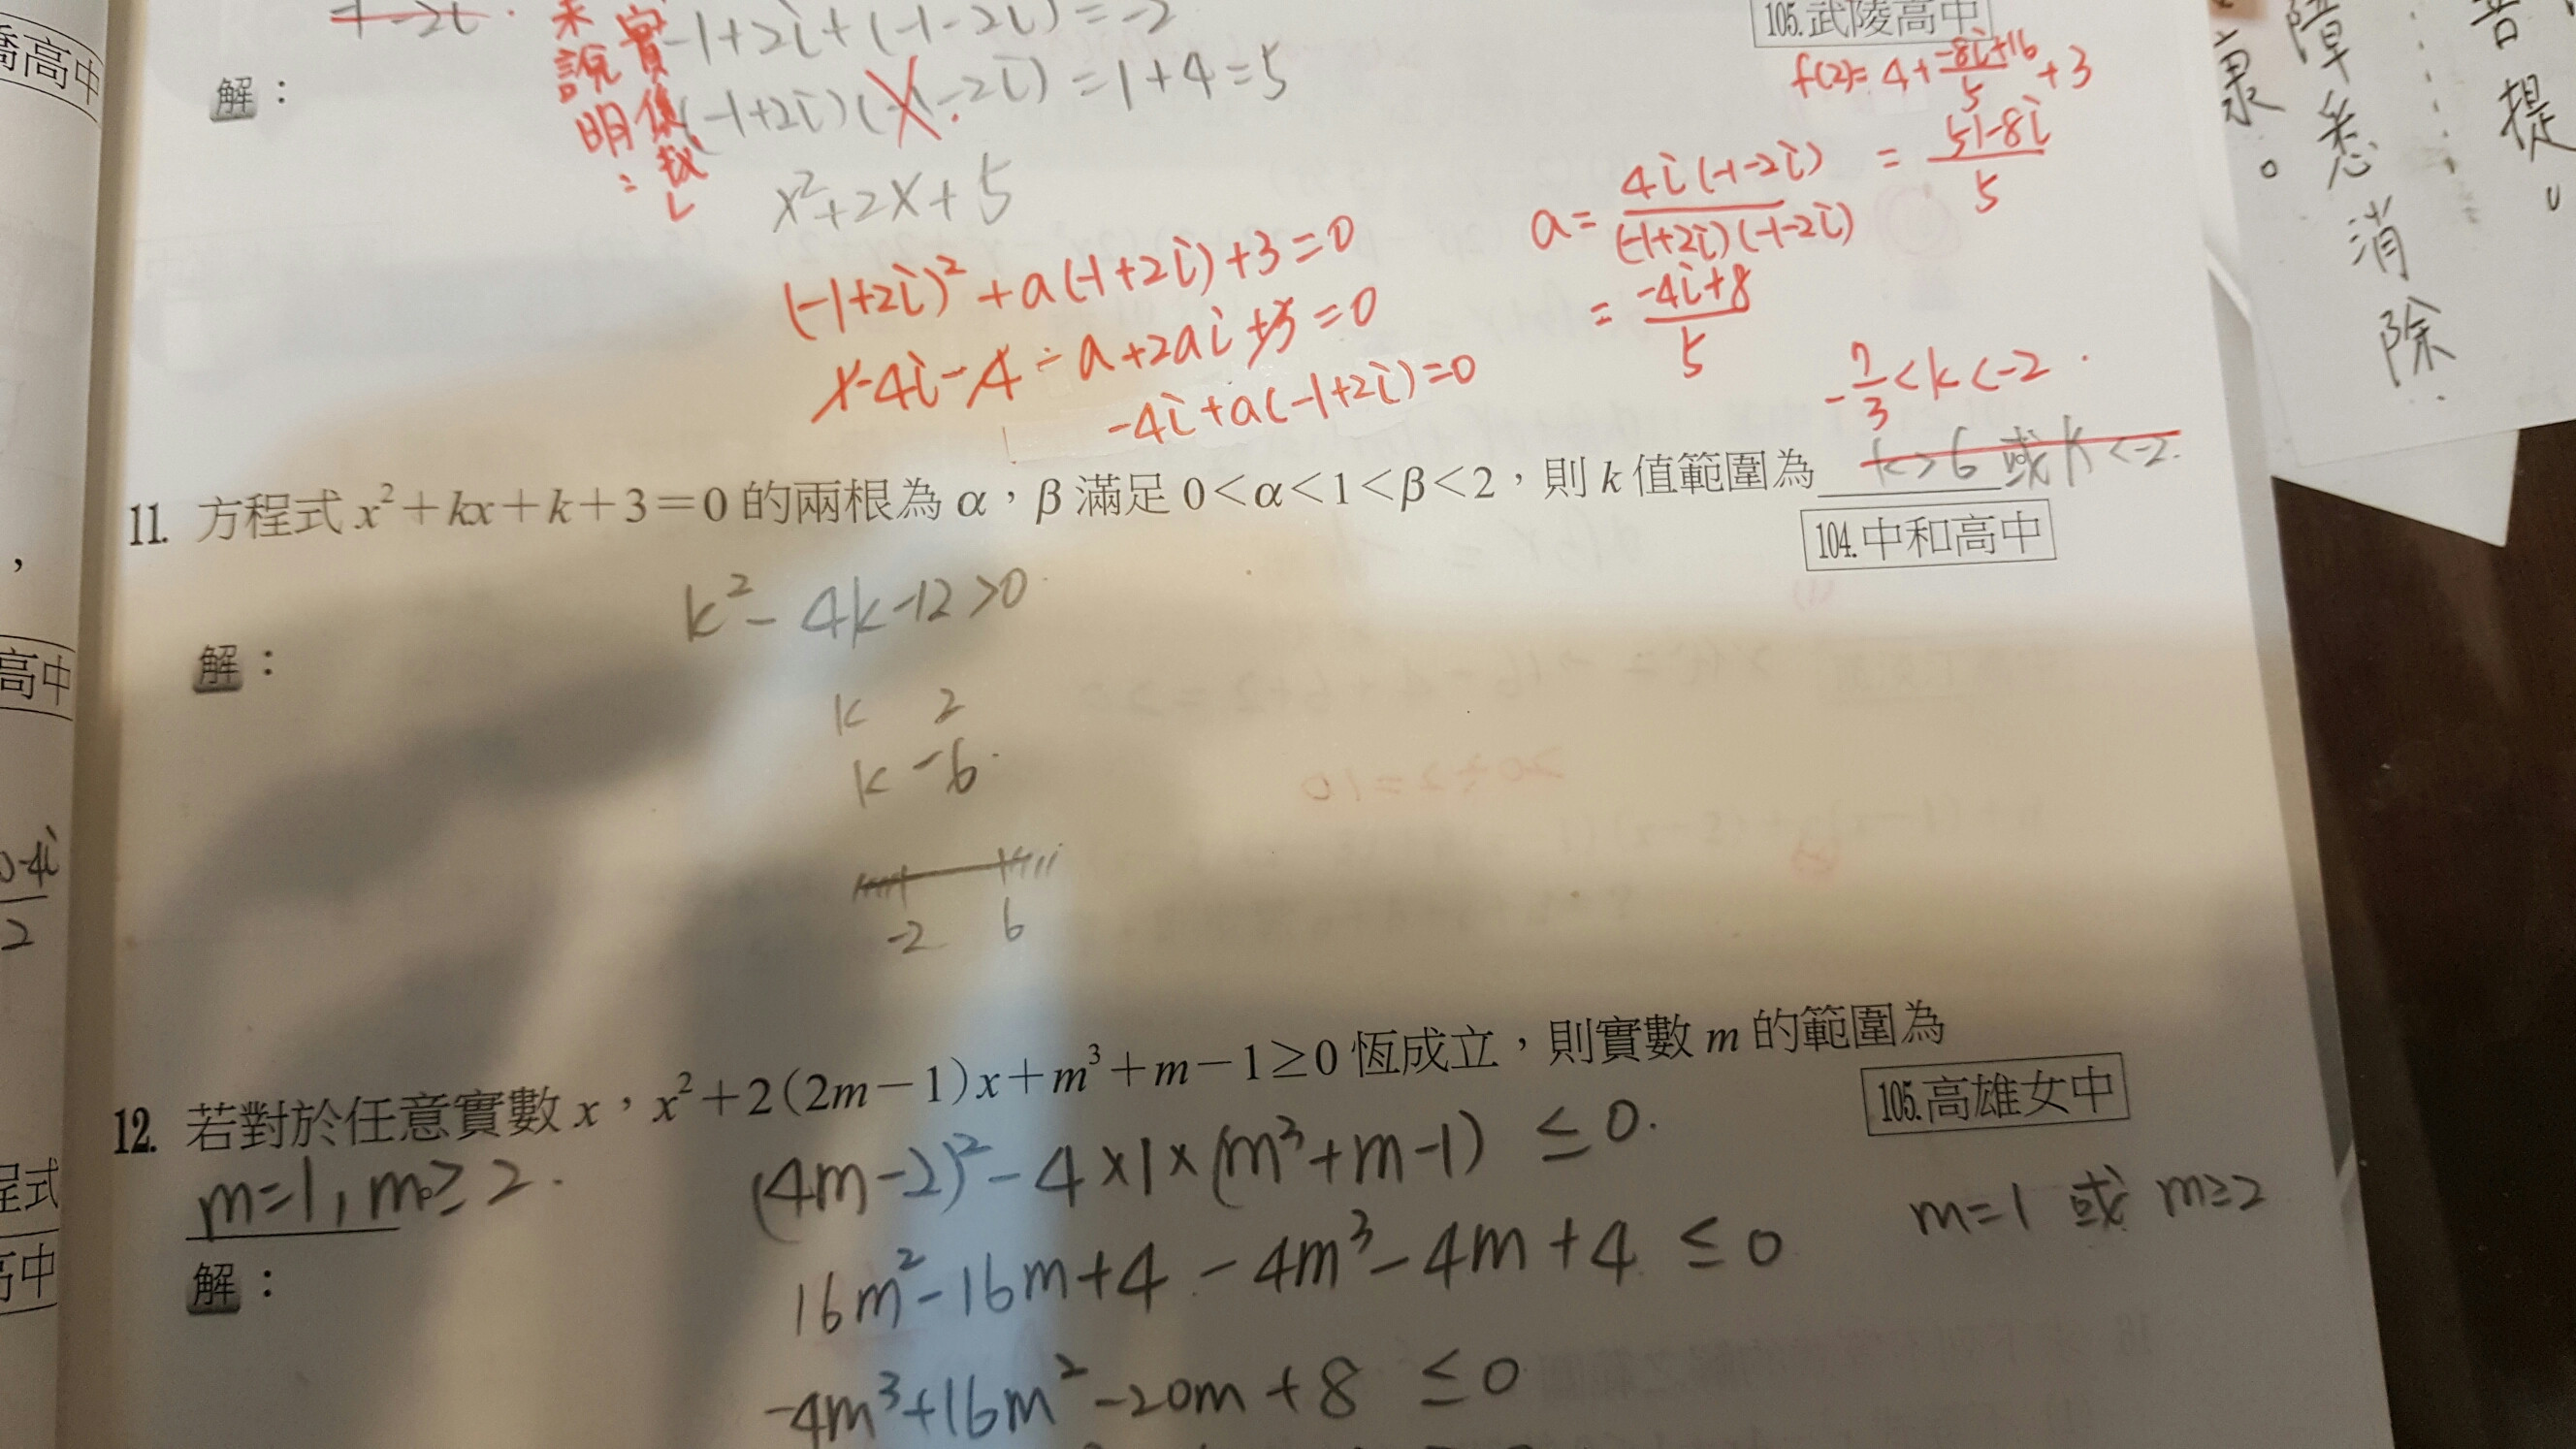 105.武陵高中
-1+2i+(-1-2i)=-2
(-1+2i)( -2i)=1+4=5
x²+2x+5
未說明:
實係數
解：
f(2)=4+\frac{-8i+16}{5}+3
=\frac{51-8i}{5}
(-1+2i)²+a(-1+2i)+3=0
1-4i-4-a+2ai+3=0
-4i+a(-1+2i)=0
a=\frac{4i(-1-2i)}{(-1+2i)(-1-2i)}
=\frac{-4i+8}{5}
-\frac{7}{3}<k<-2
11. 方程式 x²+kx+k+3=0 的兩根為 α，β 滿足 0<α<1<β<2，則 k 值範圍為 k>6 或 k<-2.
104.中和高中
k²-4k-12>0
解：
k 2
k -6
-2 6
12. 若對於任意實數 x，x²+2(2m-1)x+m³+m-1≥0 恆成立，則實數 m 的範圍為
105.高雄女中
m=1, m≥2.
(4m-2)²-4×1×(m³+m-1) ≤0.
m=1 或 m≥2
解：
16m²-16m+4-4m³-4m+4 ≤0
-4m³+16m²-20m+8 ≤0
高中
高中
-4i
2
程式
高中
障悉消除
菩提。
康。